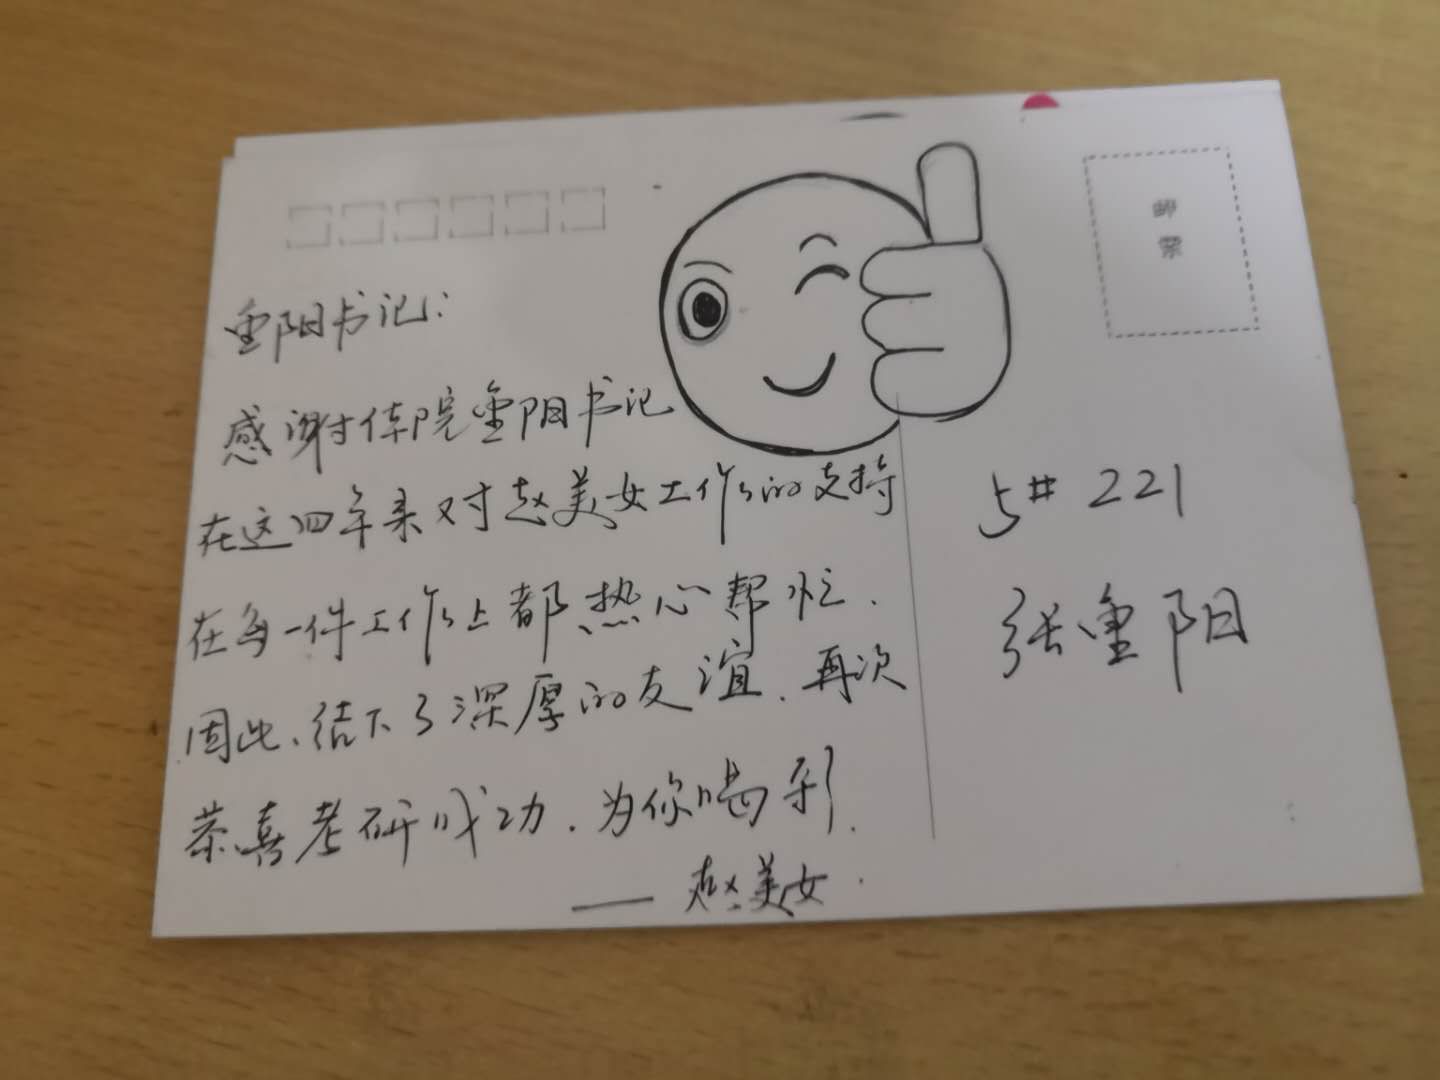 邮
票
重阳书记:
感谢体院重阳书记
在这四年来对赵美女工作的支持
在每一件工作上都热心帮忙.
因此、结下了深厚的友谊.再次
恭喜考研成功.为你喝彩.
——赵美女.
5# 221
张重阳